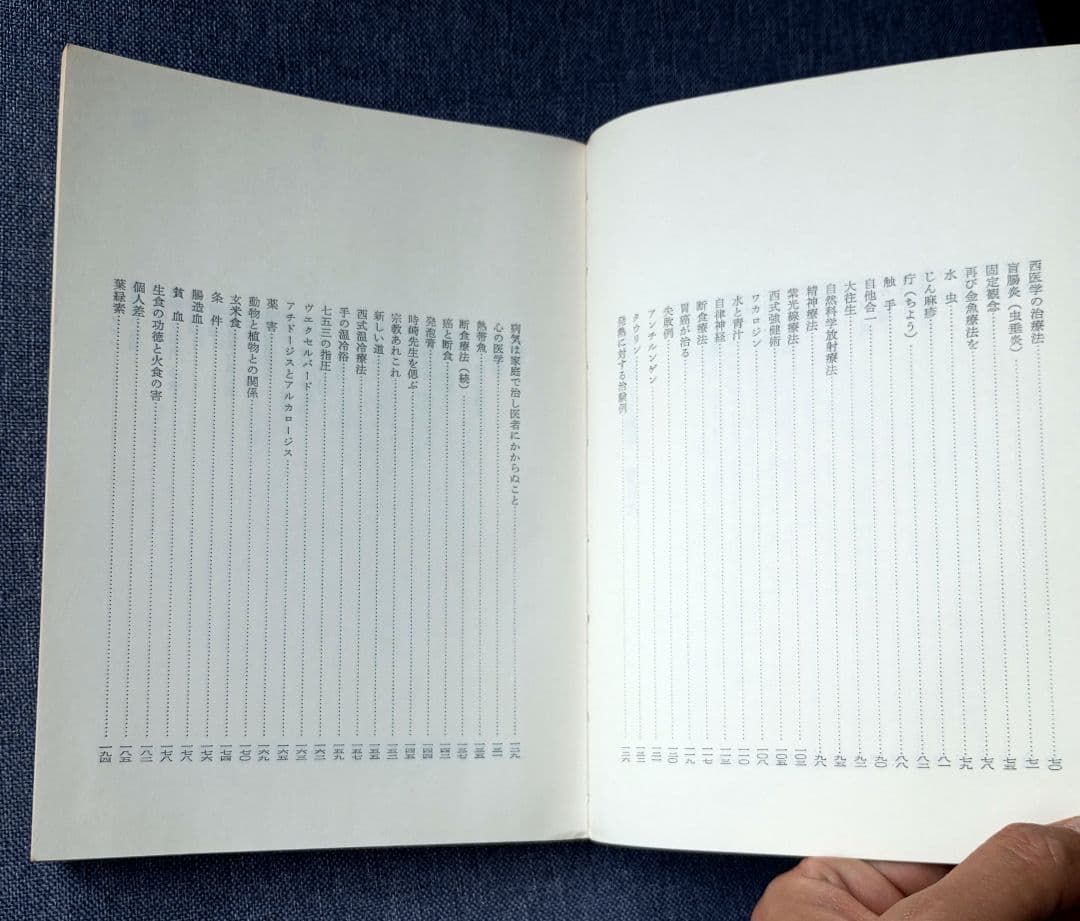 西医学の治療法……七〇
盲腸炎（虫垂炎）……七二
固定観念……七五
再び金魚療法を……七八
水虫……七九
じん麻疹……八一
疔（ちょう）……八二
触手……八八
自他合一……九〇
大往生……九二
自然科学放射療法……九五
精神療法……九八
紫光線療法……一〇三
西式強健術……一〇五
ワカロジン……一〇八
水と青汁……一一〇
自律神経……一一三
断食療法……一一七
胃癌が治る……一一九
失敗例……一二〇
アンチルンゲン……一二一
タウリン……一二三
発熱に対する治験例……一二六
病気は家庭で治し医者にかからぬこと……一二九
心の医学……一三一
熱帯魚……一三五
断食療法（続）……一三七
癌と断食……一四二
発泡膏……一四四
時崎先生を偲ぶ……一四五
宗教あれこれ……一五三
新しい道……一五五
西式温冷療法……一五七
手の温冷浴……一五九
七五三の指圧……一六二
ヴェクセルバード……一六三
アチドージスとアルカロージス……一六五
薬害……一六九
動物と植物との関係……一七〇
玄米食……一七四
条件……一七六
腸造血……一七八
貧血……一七八
生食の功徳と火食の害……一八二
個人差……一八五
葉緑素……一九四